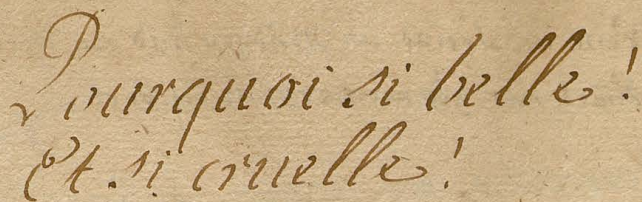 Pourquoi si belle!
Et si cruelle!